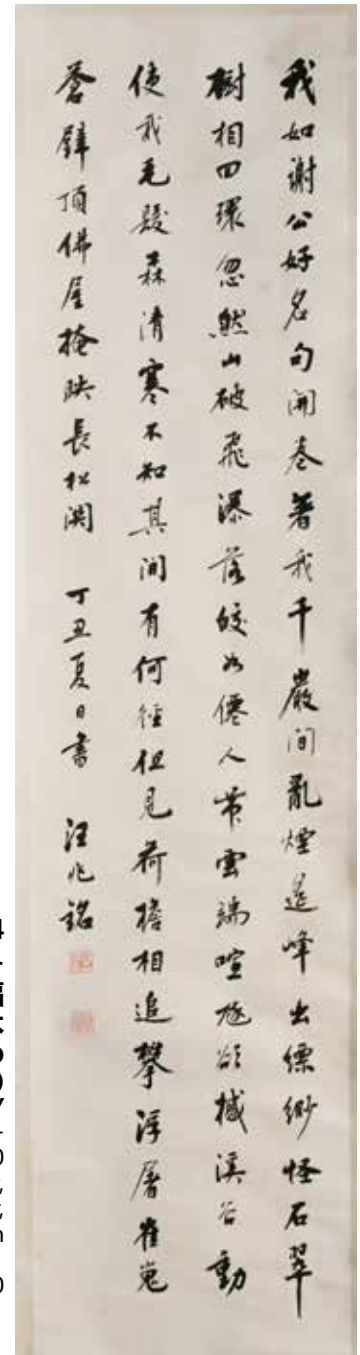 我如謝公好名句開卷著我千巖間亂煙遙峰出縹緲怪石翠
樹相回環忽然山破飛瀑落皎如僊人帶雲端喧豗欲撼溪谷動
使我毛髮森清寒不知其間有何徑但見荷檐相追攀浮屠崔嵬
蒼壁頂佛屋掩映長松閒 丁丑夏日書 汪兆銘